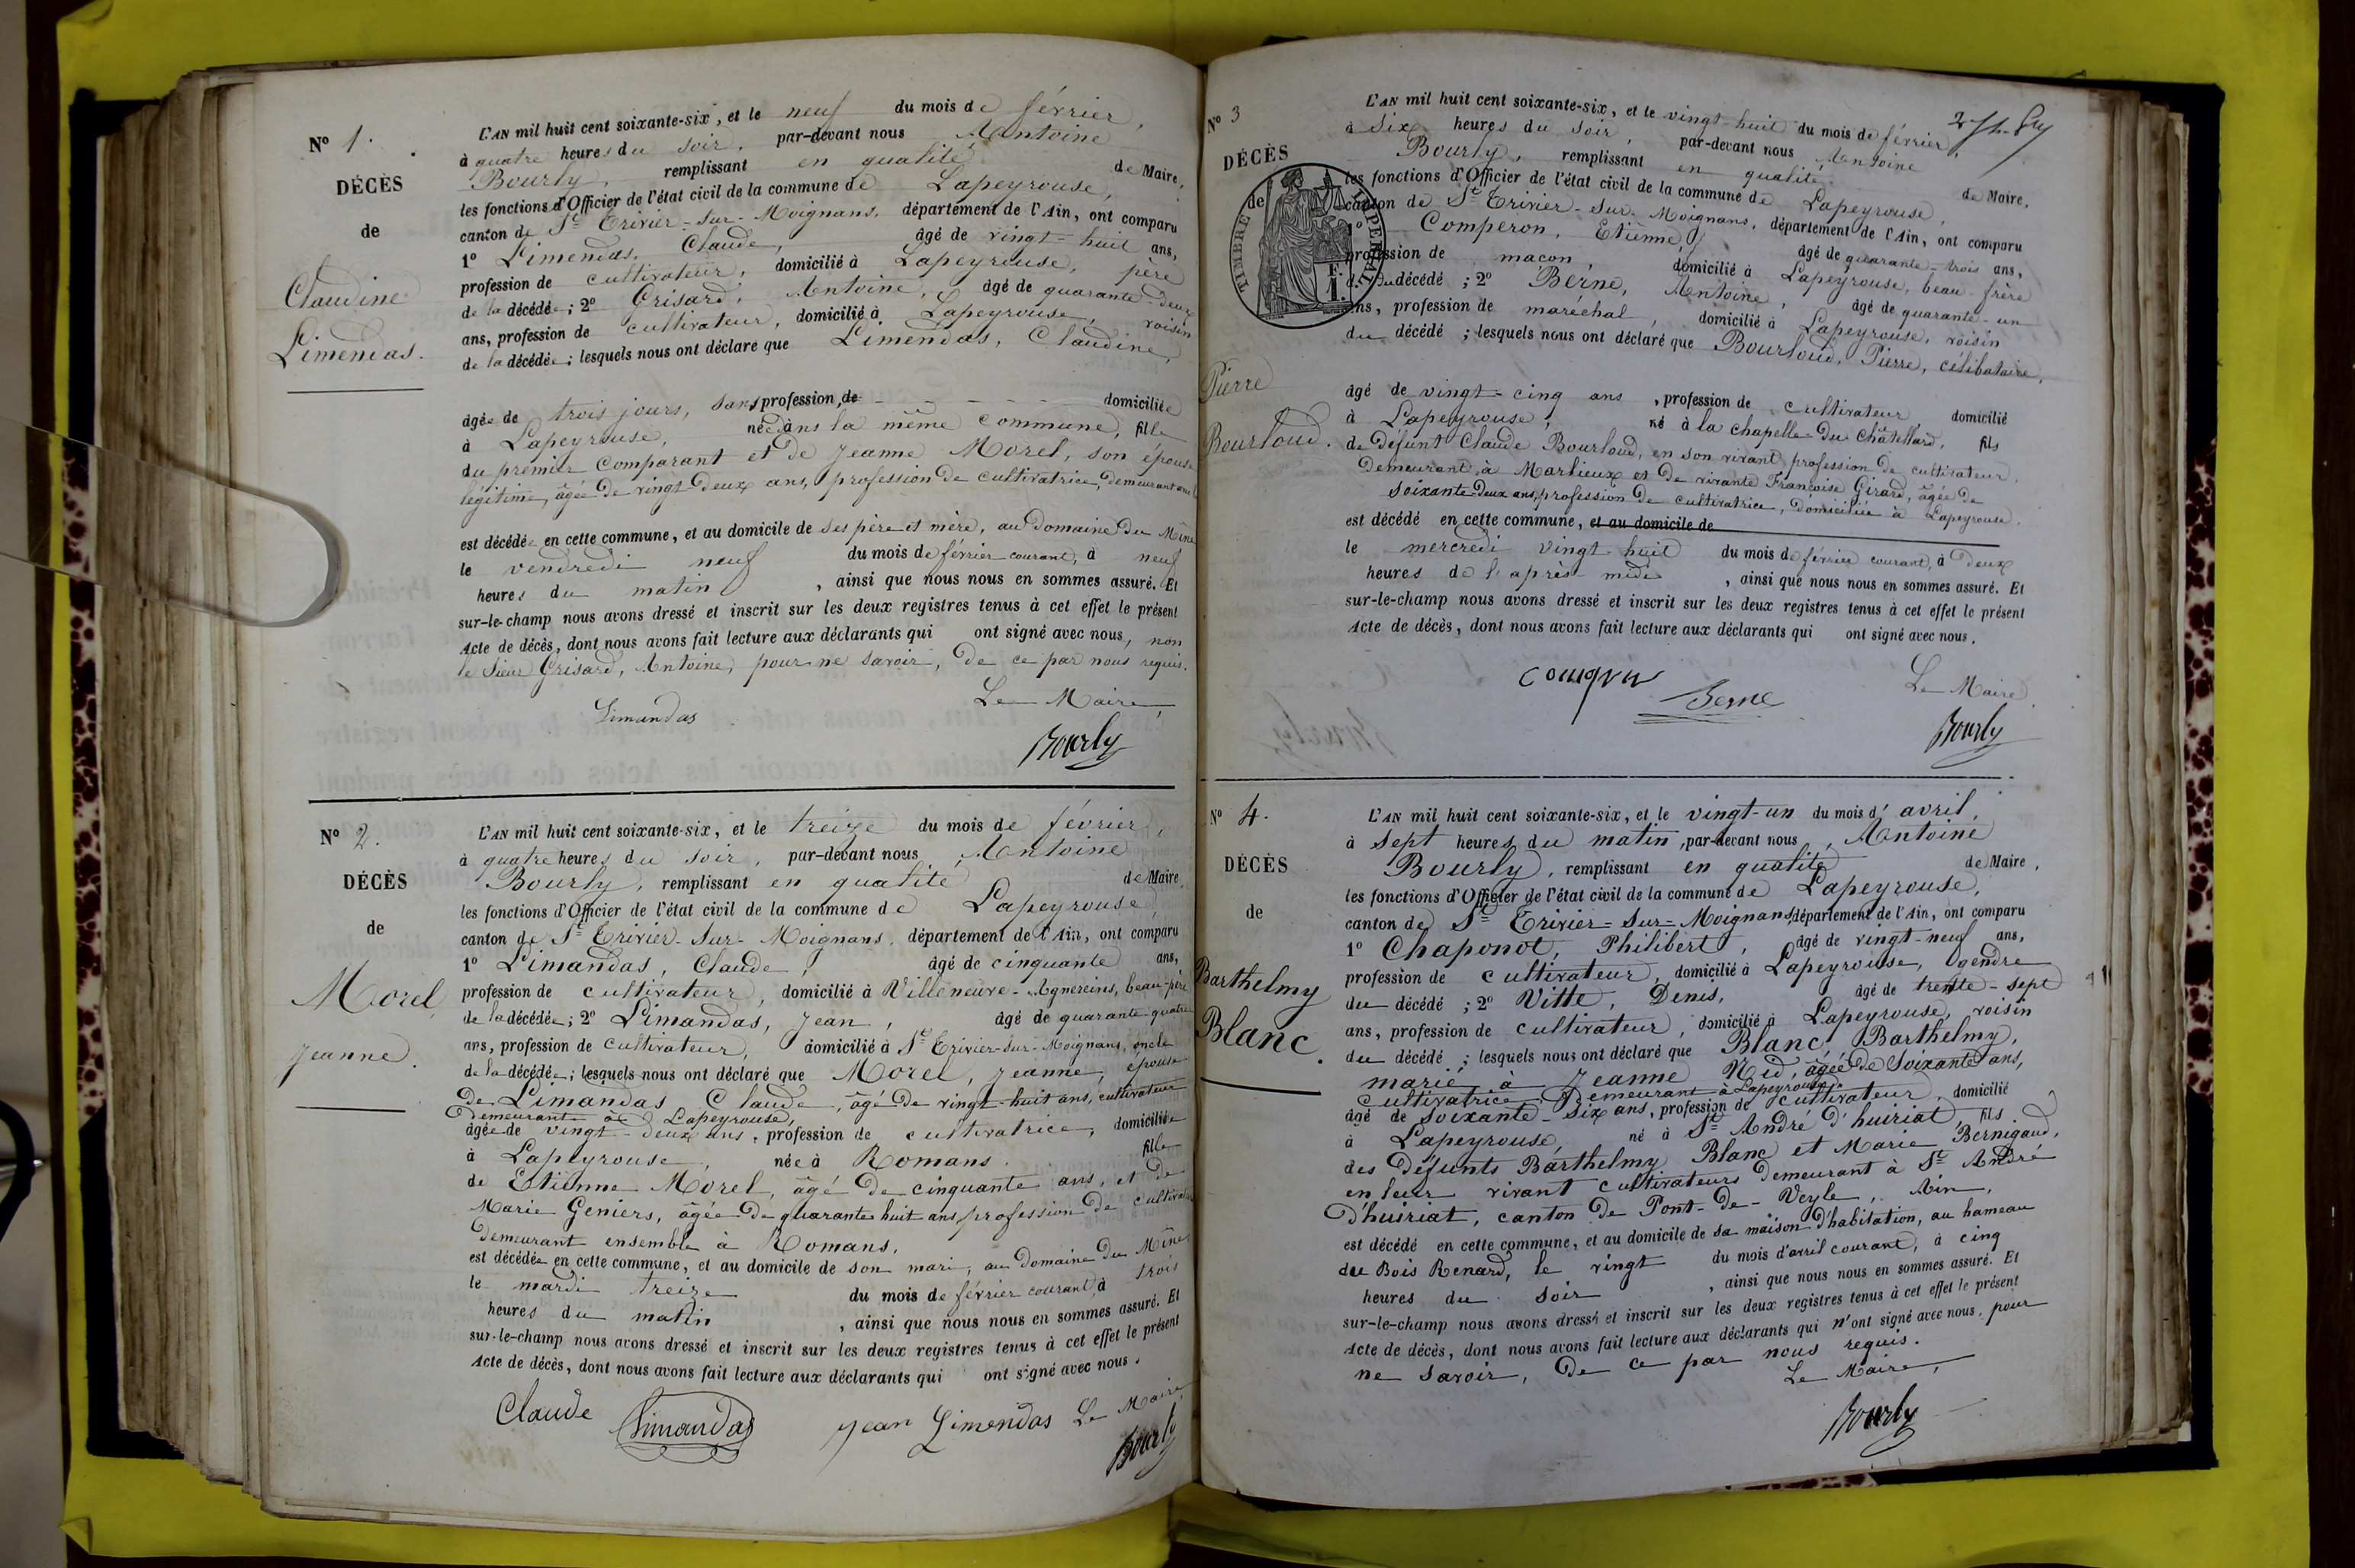 Nº 1.
DÉCÈS
de
Claudine
Limendas.
L'AN mil huit cent soixante-six, et le neuf du mois de février,
à quatre heures du soir, par-devant nous Antoine
Bourly, remplissant en qualité de Maire,
les fonctions d'Officier de l'état civil de la commune de Lapeyrouse,
canton de St Trivier-sur-Moignans, département de l'Ain, ont comparu
1º Limendas, Claude, âgé de vingt-huit ans,
profession de cultivateur, domicilié à Lapeyrouse, père
de la décédée; 2º Grisard, Antoine, âgé de quarante-deux
ans, profession de cultivateur, domicilié à Lapeyrouse, voisin
de la décédée; lesquels nous ont déclaré que Limendas, Claudine,
âgée de trois jours, sans profession, de domiciliée
à Lapeyrouse, née dans la même commune, fille
du premier comparant et de Jeanne Morel, son épouse
légitime, âgée de vingt-deux ans, profession de cultivatrice, demeurant
est décédée en cette commune, et au domicile de ses père et mère, au Domaine du Mine
le vendredi neuf du mois de février courant, à neuf
heures du matin, ainsi que nous nous en sommes assuré. Et
sur-le-champ nous avons dressé et inscrit sur les deux registres tenus à cet effet le présent
Acte de décès, dont nous avons fait lecture aux déclarants qui ont signé avec nous, non
le Sieur Grisard, Antoine, pour ne savoir, de ce par nous requis.
Le Maire,
Limandas
Bourly
Nº 2.
DÉCÈS
de
Morel
Jeanne.
L'AN mil huit cent soixante-six, et le treize du mois de février,
à quatre heures du soir, par-devant nous, Antoine
Bourly, remplissant en qualité de Maire,
les fonctions d'Officier de l'état civil de la commune de Lapeyrouse,
canton de St Trivier-sur-Moignans, département de l'Ain, ont comparu
1º Limandas, Claude, âgé de cinquante ans,
profession de cultivateur, domicilié à Villeneuve-Agnereins, beau-père
de la décédée; 2º Limandas, Jean, âgé de quarante quatre
ans, profession de cultivateur, domicilié à St Trivier-sur-Moignans, oncle
de la décédée; lesquels nous ont déclaré que Morel, Jeanne, épouse
de Limandas Claude, âgé de vingt-huit ans, cultivateur
demeurante à Lapeyrouse,
âgée de vingt-deux ans, profession de cultivatrice, domiciliée
à Lapeyrouse, née à Romans. fille
de Etienne Morel, âgé de cinquante ans, et de
Marie Geniers, âgée de quarante huit ans, profession de cultivateurs
demeurant ensemble à Romans,
est décédée en cette commune, et au domicile de son mari, au Domaine du Mine
le mardi treize du mois de février courant, à trois
heures du matin, ainsi que nous nous en sommes assuré. Et
sur-le-champ nous avons dressé et inscrit sur les deux registres tenus à cet effet le présent
Acte de décès, dont nous avons fait lecture aux déclarants qui ont signé avec nous.
Claude Limandas Jean Limendas Le Maire,
Bourly
Nº 3
DÉCÈS
de
TIMBRE IMPERIAL
F.
1.
Pierre
Bourloud.
L'AN mil huit cent soixante-six, et le vingt-huit du mois de février,
à six heures du soir, par-devant nous Antoine
Bourly, remplissant en qualité de Maire,
les fonctions d'Officier de l'état civil de la commune de Lapeyrouse,
canton de St Trivier-sur-Moignans, département de l'Ain, ont comparu
1º Comperon, Etienne, âgé de quarante-trois ans,
profession de macon, domicilié à Lapeyrouse, beau-frère
du décédé; 2º Berne, Antoine, âgé de quarante-un
ans, profession de maréchal, domicilié à Lapeyrouse, voisin
du décédé; lesquels nous ont déclaré que Bourloud, Pierre, célibataire,
âgé de vingt-cinq ans, profession de cultivateur domicilié
à Lapeyrouse, né à la chapelle du châtellard, fils
de défunt Claude Bourloud, en son vivant profession de cultivateur
demeurant à Marlieux et de vivante Françoise Girard, âgée de
soixante-deux ans, profession de cultivatrice, domiciliée à Lapeyrouse.
est décédé en cette commune, et au domicile de
le mercredi vingt huit du mois de février courant, à deux
heures de l'après-midi, ainsi que nous nous en sommes assuré. Et
sur-le-champ nous avons dressé et inscrit sur les deux registres tenus à cet effet le présent
Acte de décès, dont nous avons fait lecture aux déclarants qui ont signé avec nous.
Berne
Le Maire
Bourly
Nº 4.
DÉCÈS
de
Barthelmy
Blanc.
L'AN mil huit cent soixante-six, et le vingt-un du mois d'avril,
à sept heures du matin, par-devant nous, Antoine
Bourly, remplissant en qualité de Maire,
les fonctions d'Officier de l'état civil de la commune de Lapeyrouse,
canton de St Trivier-sur-Moignans, département de l'Ain, ont comparu
1º Chaponot, Philibert, âgé de vingt-neuf ans,
profession de cultivateur, domicilié à Lapeyrouse, gendre
du décédé; 2º Vitte, Denis, âgé de trente-sept
ans, profession de cultivateur, domicilié à Lapeyrouse, voisin
du décédé; lesquels nous ont déclaré que Blanc, Barthelmy,
marié à Jeanne Nid, âgée de soixante ans,
cultivatrice demeurant à Lapeyrouse,
âgé de soixante-six ans, profession de cultivateur, domicilié
à Lapeyrouse, né à St André d'huiriat, fils
des défunts Barthelmy Blanc et Marie Bernigaud,
en leur vivant cultivateurs demeurant à St André
D'huiriat, canton de Pont-de-Veyle, Ain,
est décédé en cette commune, et au domicile de sa maison d'habitation, au hameau
du Bois Renard, le vingt du mois d'avril courant, à cinq
heures du soir, ainsi que nous nous en sommes assuré. Et
sur-le-champ nous avons dressé et inscrit sur les deux registres tenus à cet effet le présent
Acte de décès, dont nous avons fait lecture aux déclarants qui n'ont signé avec nous, pour
ne savoir, de ce par nous requis.
Le Maire,
Bourly